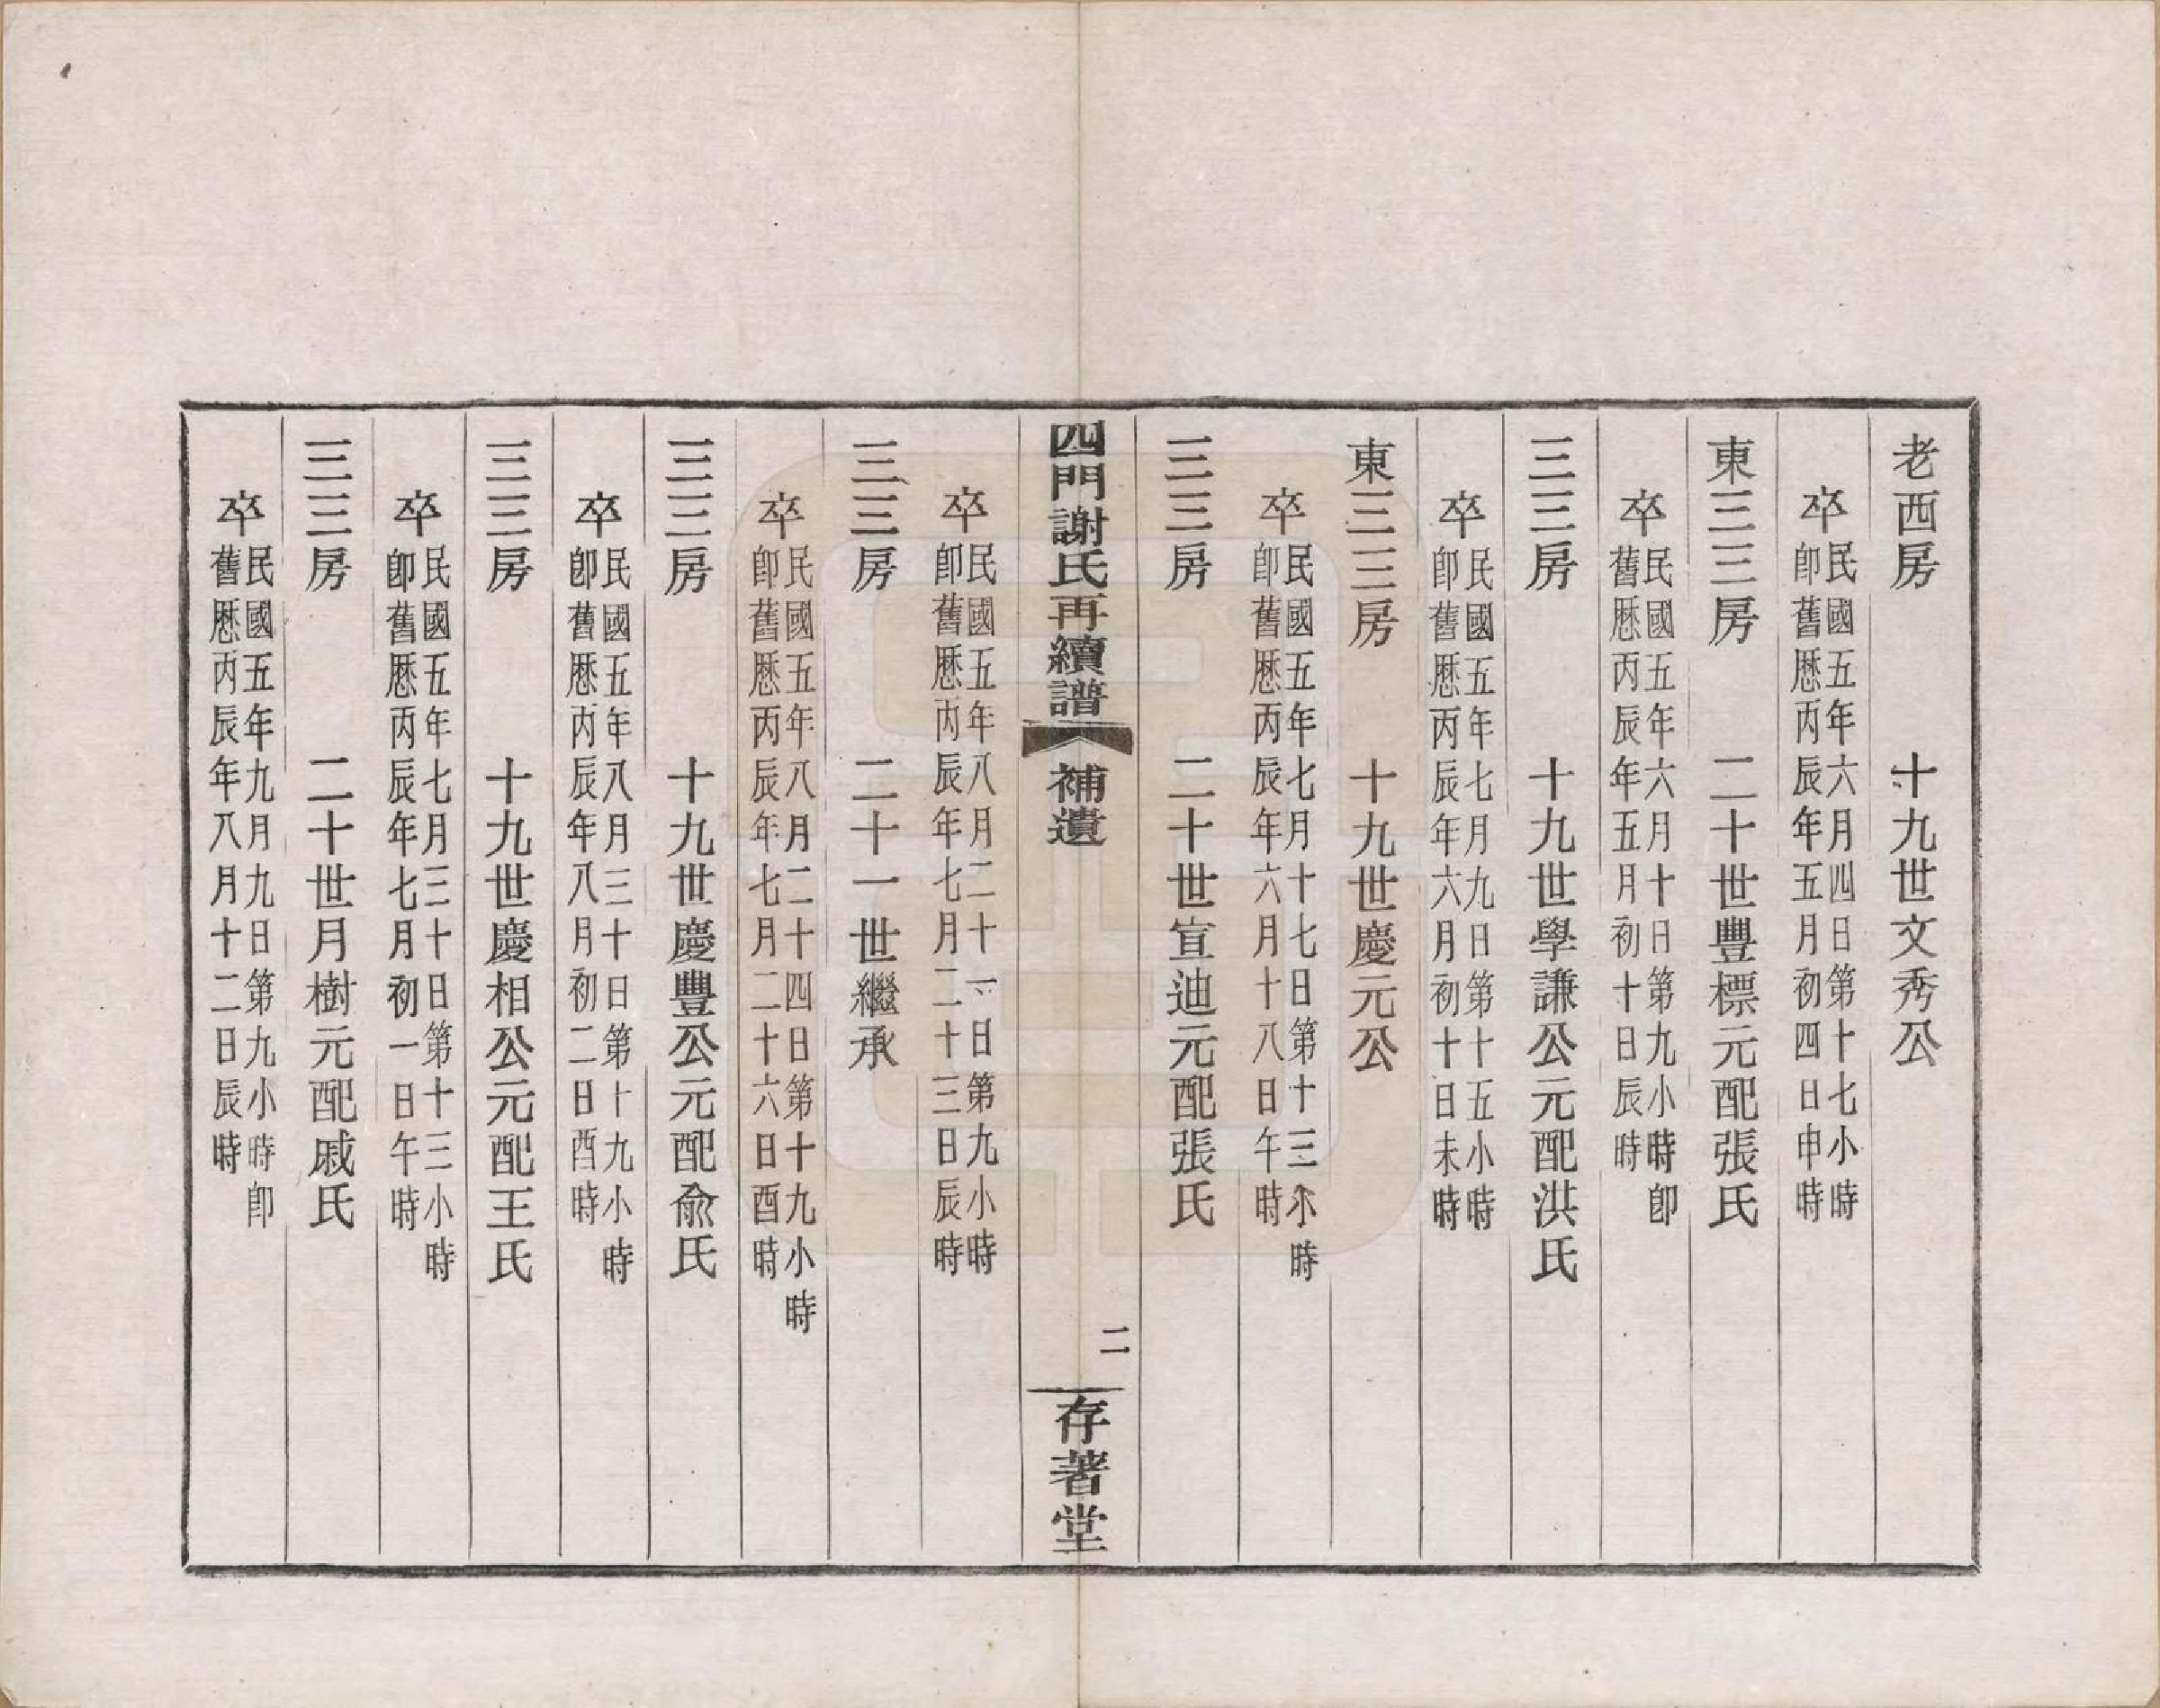 老西房　十九世文秀公
卒民國五年六月四日第十七小時
即舊歷丙辰年五月初四日申時
東三三房　二十世豐標元配張氏
卒民國五年六月十日第九小時即
舊歷丙辰年五月初十日辰時
三三房　十九世學謙公元配洪氏
卒民國五年七月九日第十五小時
即舊歷丙辰年六月初十日未時
東三三房　十九世慶元公
卒民國五年七月十七日第十三小時
即舊歷丙辰年六月十八日午時
三三房　二十世宣迪元配張氏
四門謝氏再續譜　補遺　二　存著堂
卒民國五年八月二十一日第九小時
即舊歷丙辰年七月二十三日辰時
三三房　二十一世繼承
卒民國五年八月二十四日第十九小時
即舊歷丙辰年七月二十六日酉時
三三房　十九世慶豐公元配俞氏
卒民國五年八月三十日第十九小時
即舊歷丙辰年八月初二日酉時
三三房　十九世慶相公元配王氏
卒民國五年七月三十日第十三小時
即舊歷丙辰年七月初一日午時
三三房　二十世月樹元配戚氏
卒民國五年九月九日第九小時即
舊歷丙辰年八月十二日辰時